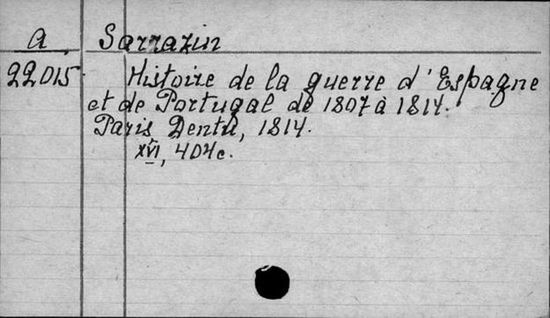 A Sarrazin
22015 Histoire de la guerre d'Espagne
et de Portugal de 1807 à 1814.
Paris, Dentu, 1814.
XVI, 404 c.